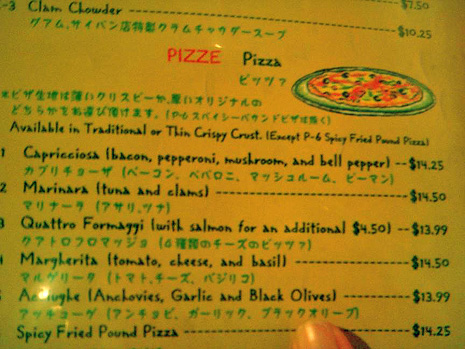 -3 Clam Chowder $7.50
グアム、サイパン店特製クラムチャウダースープ $10.25
PIZZE Pizza
ピッツァ
※ピザ生地は薄いクリスピーか、厚いオリジナルの
どちらかをお選び頂けます。(P-6 スパイシーパウンドピザは除く)
Available in Traditional or Thin Crispy Crust. (Except P-6 Spicy Fried Pound Pizza)
1 Capricciosa (bacon, pepperoni, mushroom, and bell pepper) -- $14.25
カプリチョーザ (ベーコン、ペパロニ、マッシュルーム、ピーマン)
2 Marinara (tuna and clams) $14.50
マリナーラ (アサリ、ツナ)
3 Quattro Formaggi (with salmon for an additional $4.50) -- $13.99
クアトロフロマッジョ (4種類のチーズのピッツァ)
4 Margherita (tomato, cheese, and basil) $14.50
マルゲリータ (トマト、チーズ、バジリコ)
Acciughe (Anchovies, Garlic and Black Olives) $13.99
アッチューゲ (アンチョビ、ガーリック、ブラックオリーブ)
Spicy Fried Pound Pizza $14.25